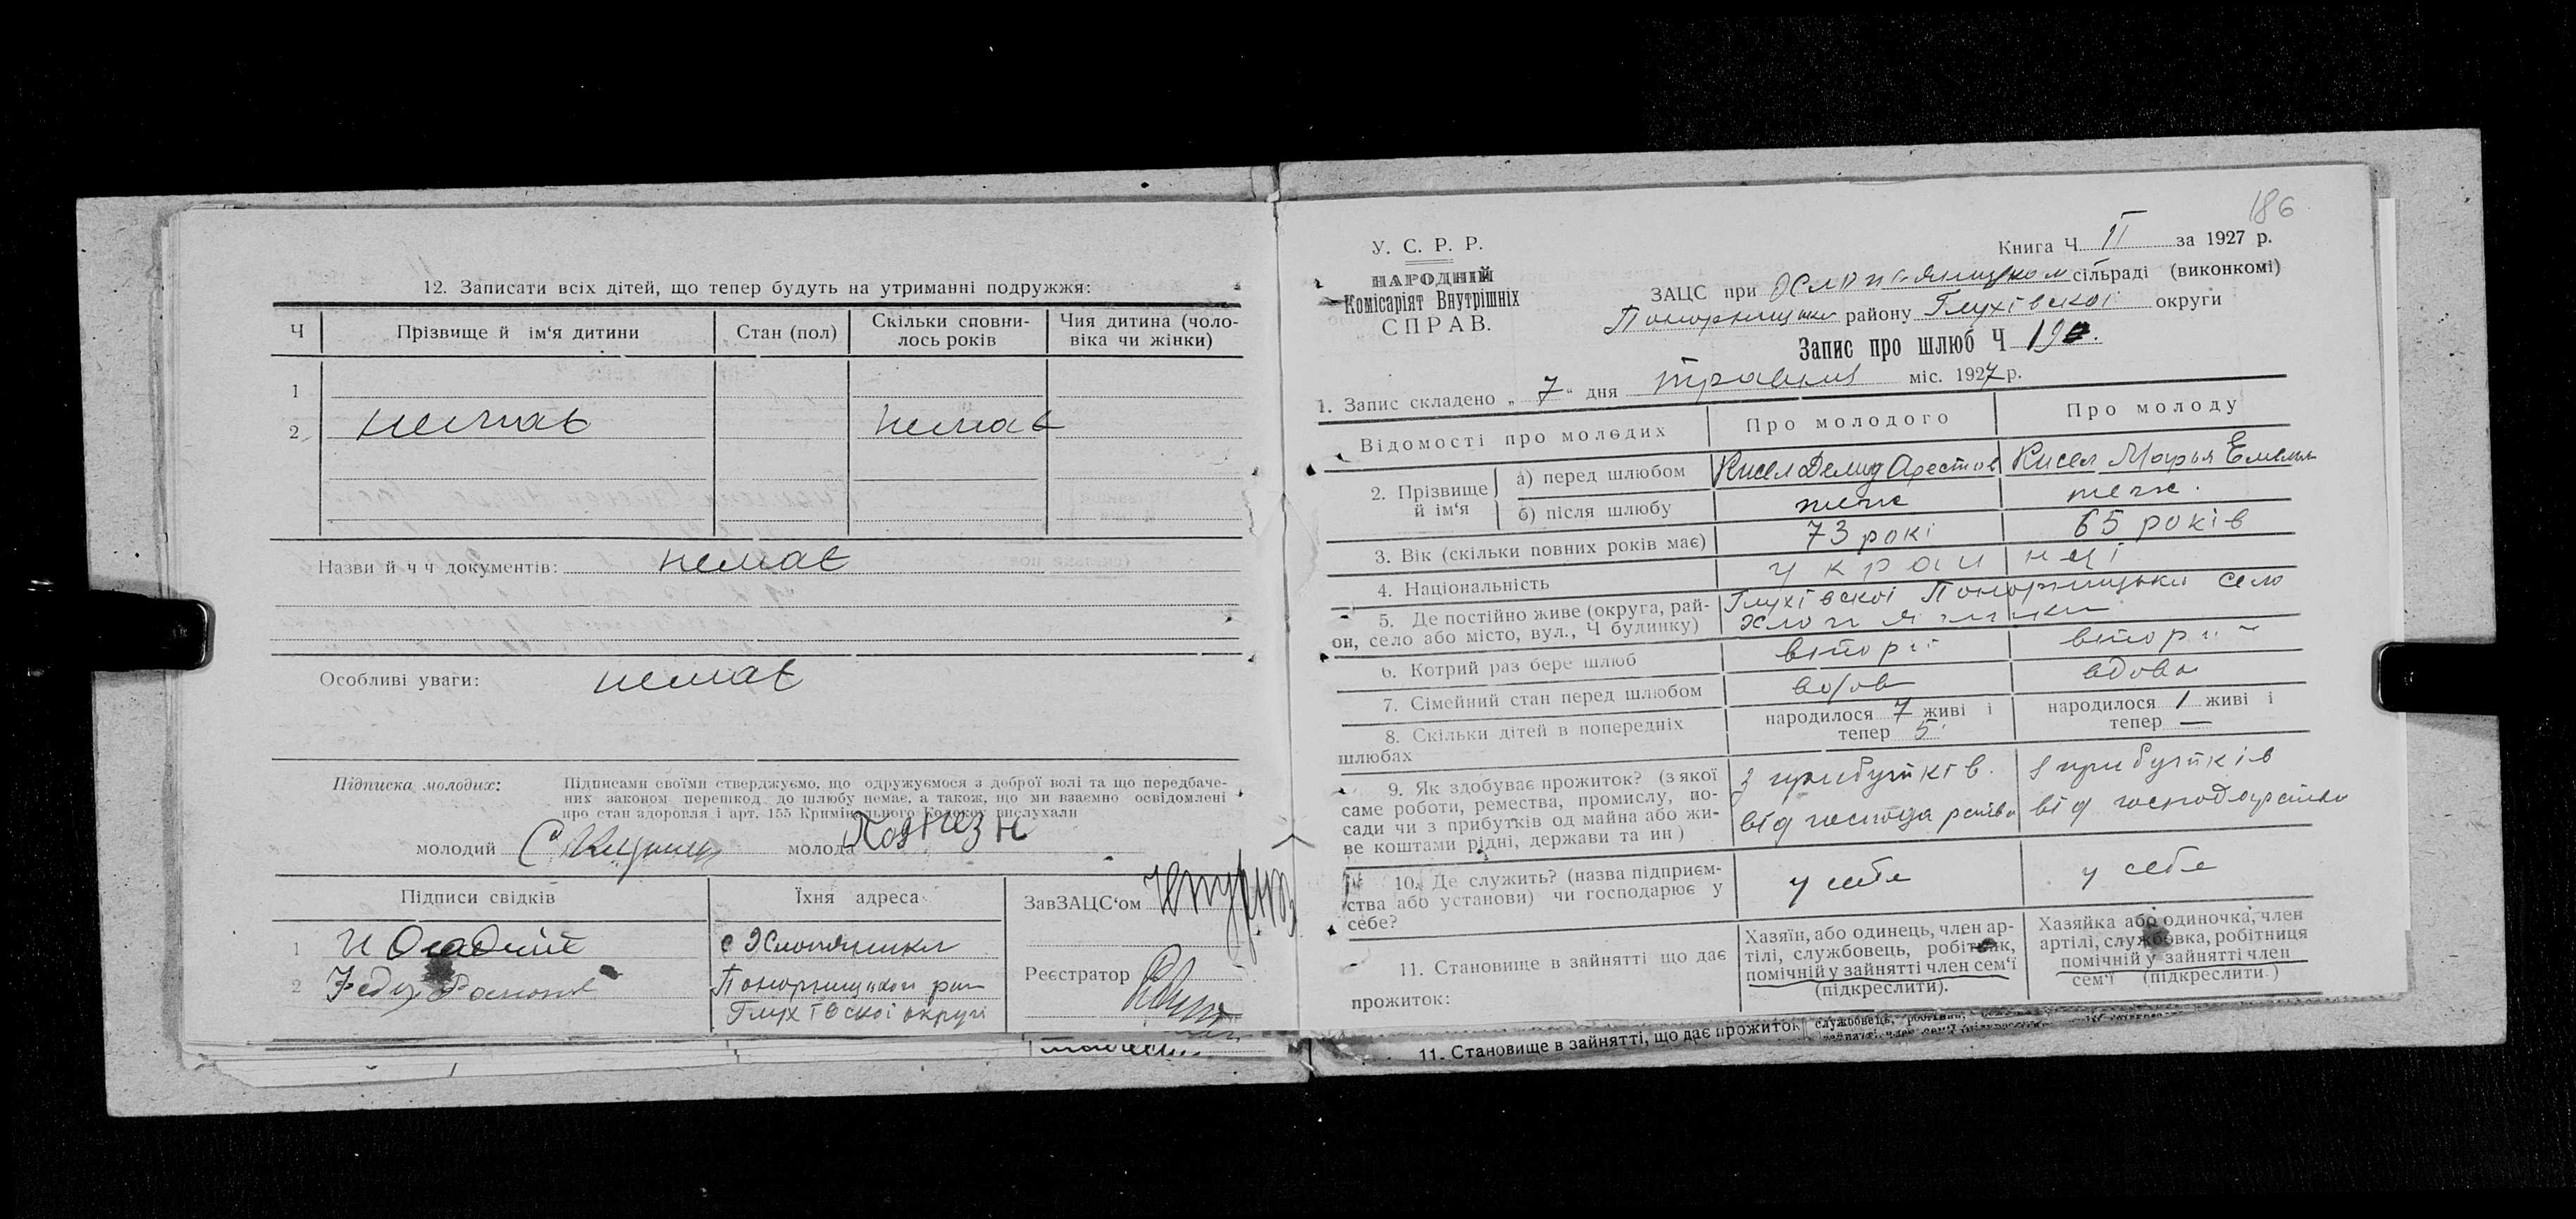 12. Записати всіх дітей, що тепер будуть на утриманні подружжя:
Ч Прізвище й ім‘я дитини Стан (пол) Скільки сповни-лось років Чия дитина (чоло-віка чи жінки)
1
2 немає немає
Назви й ч ч документів: немає
Особливі уваги: немає
Підписка молодих: Підписами своїми стверджуємо, що одружуємося з доброї волі та що передбаче-
них законом перешкод до шлюбу немає, а також, що ми взаємно освідомлені
про стан здоров‘я і арт. 155 Кримінального Кодексу вислухали
молодий молода
Підписи свідків Їхня адреса ЗавЗАЦС‘ом
1 с Хлопяники
2 Понорницького рай Реєстратор
Глухівскоі округи
186
У. С. Р. Р.
НАРОДНІЙ
Комісаріят Внутрішніх
СПРАВ.
Книга Ч II за 1927 р.
ЗАЦС при сільраді (виконкомі)
Понорницьк району Глухівскоі округи
Запис про шлюб Ч 190.
1. Запис складено „ 7 “ дня травня міс. 1927 р.
Відомості про молодих Про молодого Про молоду
2. Прізвище й ім‘я
а) перед шлюбом Кисел Демид Арестов Кисел Марья Емельян
б) після шлюбу теж теж.
3. Вік (скільки повних років має) 73 рокі 65 років
4. Національність украинці
5. Де постійно живе (округа, рай- Глухівскоі Понорницьки село
он, село або місто, вул., Ч будинку) Хлопяники
6. Котрий раз бере шлюб вторий вторий
7. Сімейний стан перед шлюбом вдова
8. Скільки дітей в попередніх народилося 7 живі і народилося 1 живі і
шлюбах тепер 5 тепер —
9. Як здобуває прожиток? (з якої з прибутків. з прибутків
саме роботи, ремества, промислу, по-
сади чи з прибутків од майна або жи- від господарства від господарства
ве коштами рідні, держави та ин)
10. Де служить? (назва підприєм- у себе у себе
ства або установи) чи господарює у
себе?
11. Становище в зайнятті що дає
прожиток:
Хазяїн, або одинець, член ар-
тілі, службовець, робітник,
помічній у зайнятті член сем‘ї
(підкреслити).
Хазяйка або одиночка, член
артілі, службовка, робітниця
помічній у зайнятті член
сем‘ї (підкреслити.)
11. Становище в зайнятті, що дає прожиток